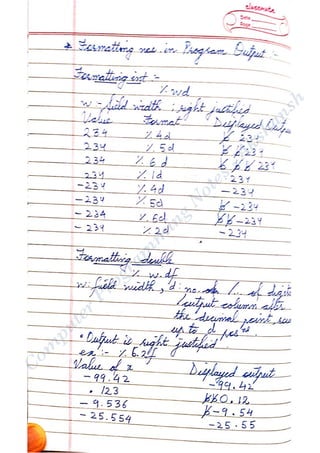 classmate
Date
Page
* Formatting nos in Program Output :-
Formatting int :-
% wd
w - field width ; right justified
Value Format Displayed Output
234 % 4d b̸ 234
234 % 5d b̸ b̸ 234
234 % 6d b̸ b̸ b̸ 234
234 % 1d 234
-234 % 4d -234
-234 % 5d b̸ -234
-234 % 6d b̸ b̸ -234
-234 % 2d -234
Formatting double
% w.df
w: field width, d: no. of digits
/output column after
the decimal point,
up to d posns
• Output is right justified
ex :- % 6.2f
Value of x Displayed output
-99.42 -99.42
.123 b̸b̸0.12
-9.536 b̸-9.54
-25.554 -25.55
Computer Programming Notes